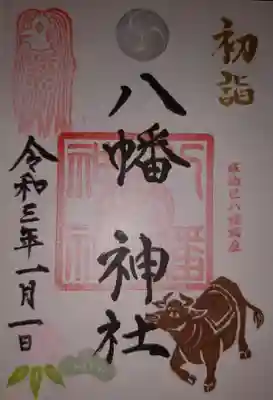 初詣
八幡神社
令和三年一月一日
八幡神社